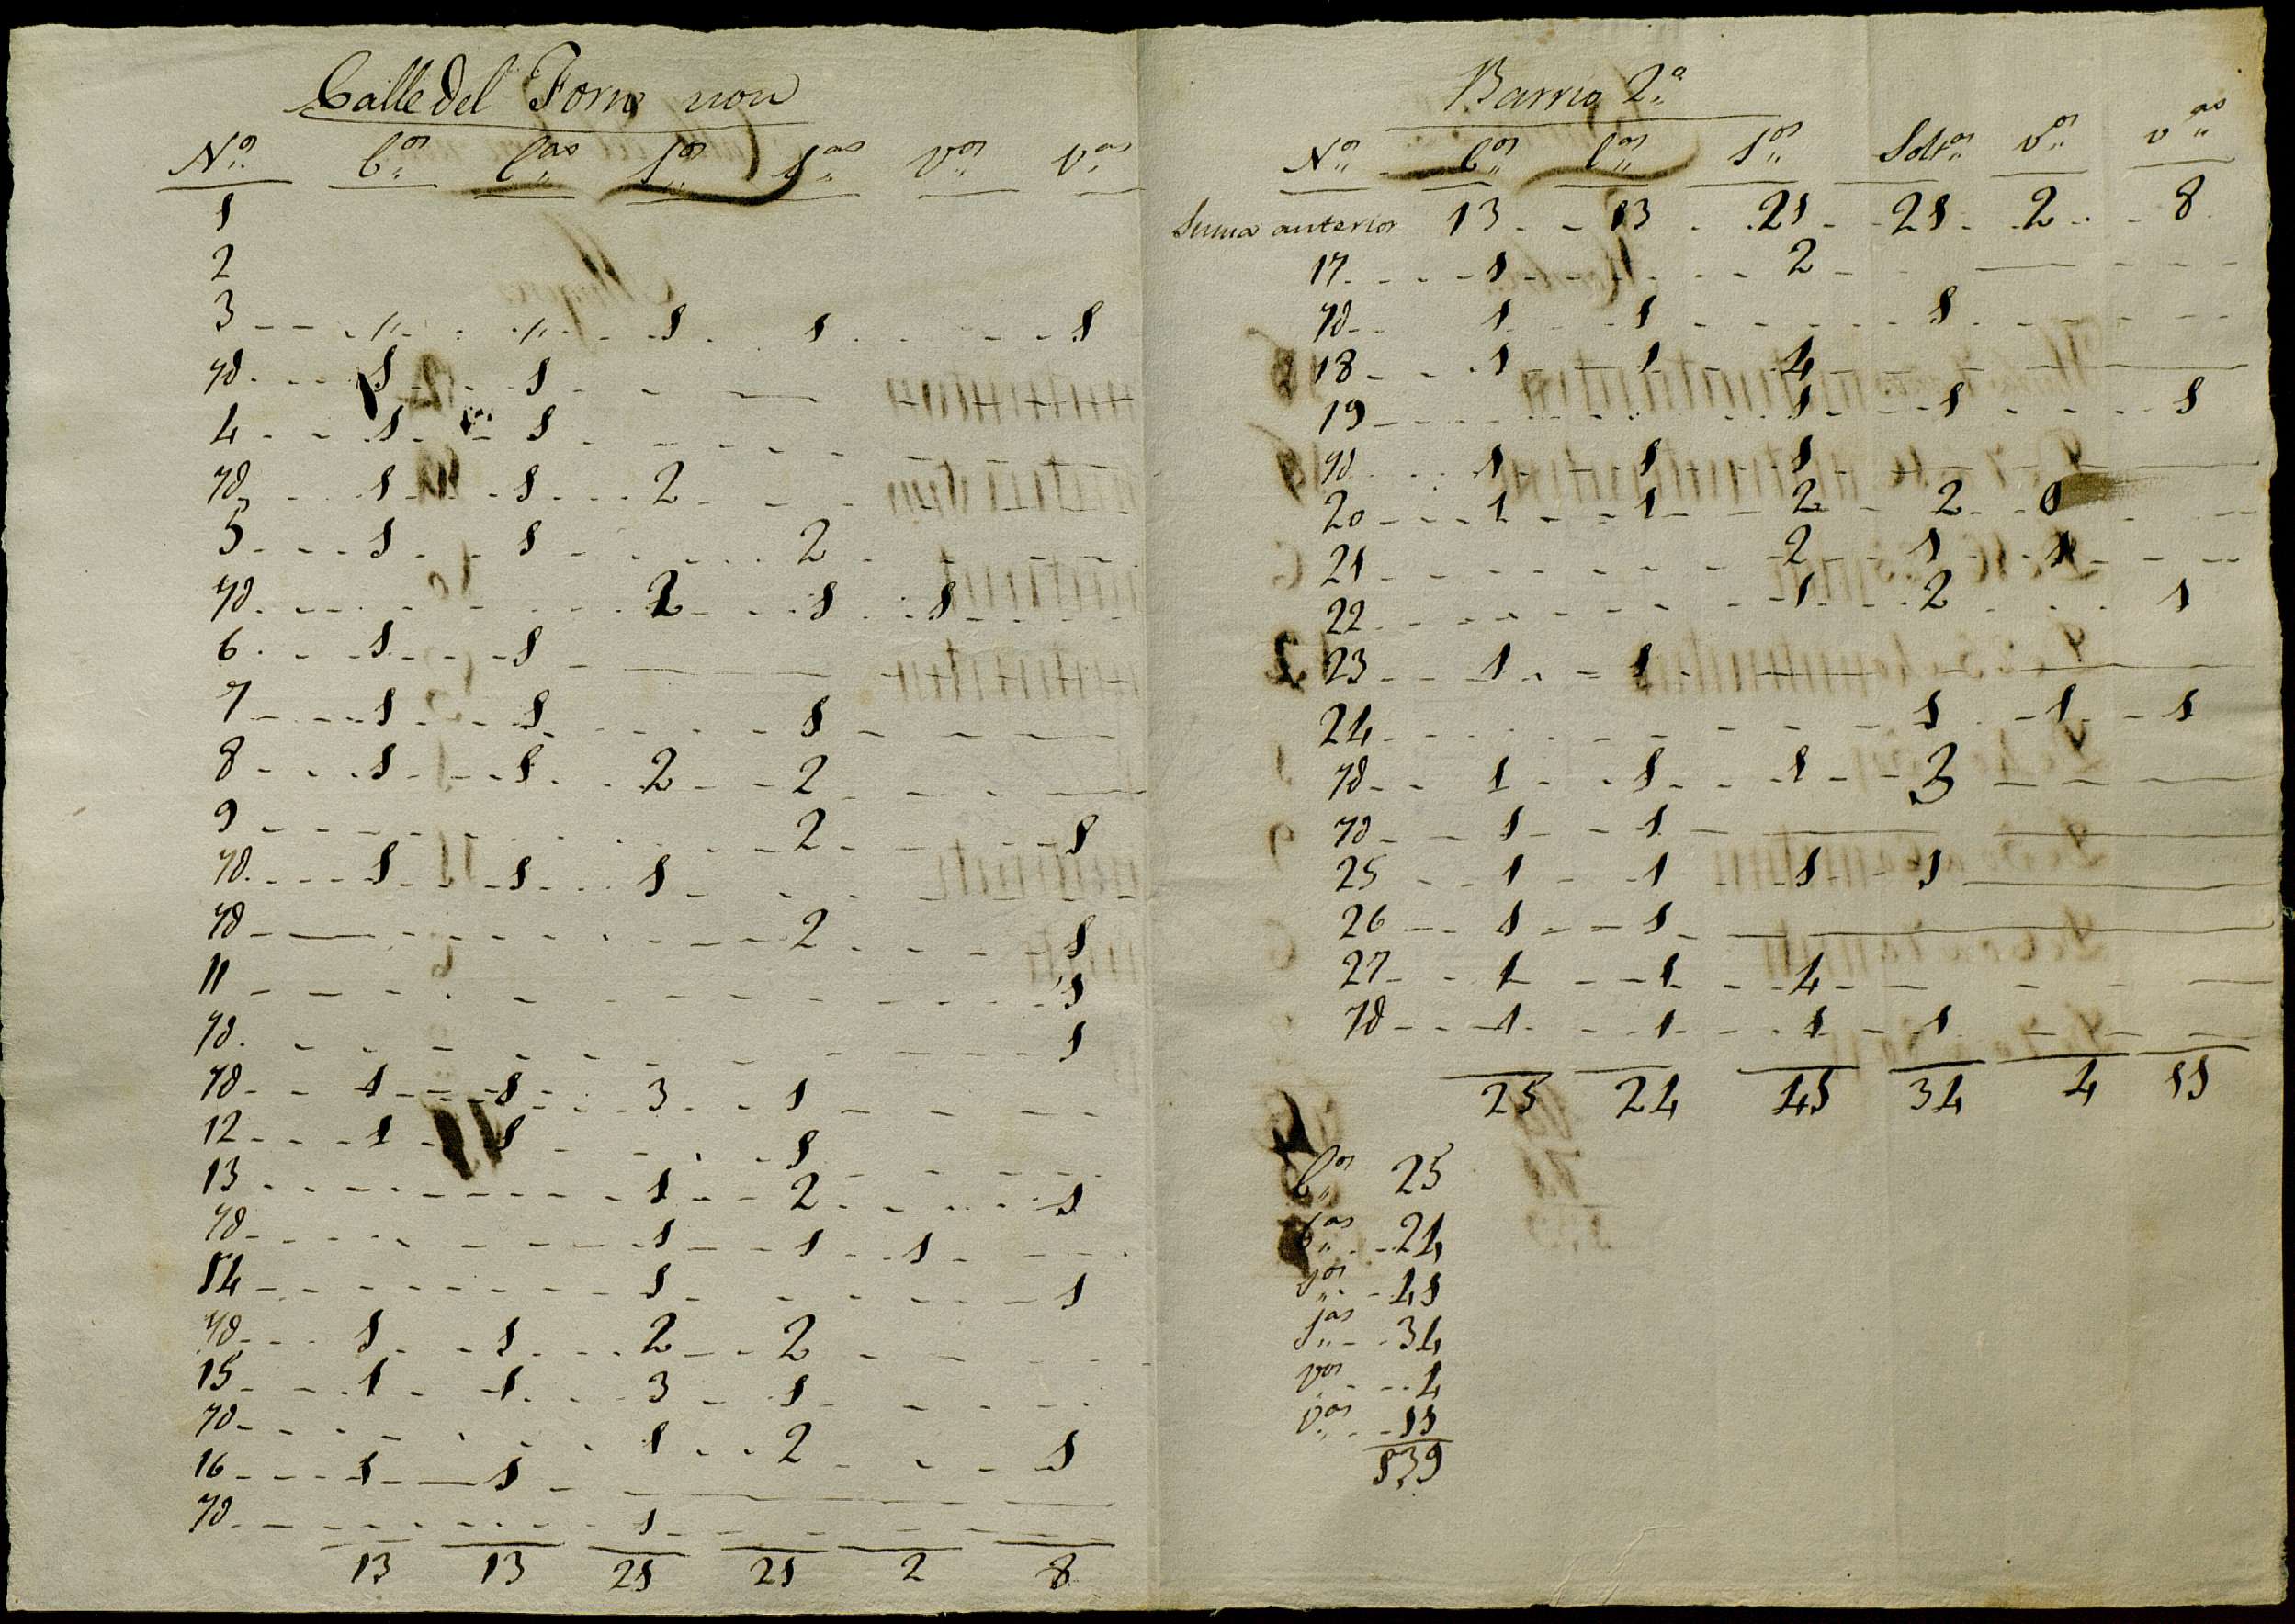 Calle del Forn nou
Nº.. C.os C.as S.os S.as V.os V.as
1
2
3 " " 1 1 1
Yd 1 1
4 1 1
Yd 1 1 2
5 1 1 2
Yd 2 1 1
6 1 1
7 1 1 1
8 1 1 2 2
9 2 1
Yd 1 1 1
Yd 2 1
11 1
Yd 1
Yd 1 1 3 1
12 1 1 1
13 1 2 1
Yd 1 1 1
14 1 1
Yd 1 1 2 2
15 1 1 3 1
Yd 1 2 1
16 1 1
Yd 1
13 13 21 21 2 8
Barrio 2.º
Nº.. C.os C.as S.os Solt.as V.os V.as
Suma anterior 13 13 21 21 2 8
17 1 2
Yd 1 1 1
18 1 1 4
19 1 1 1
Yd 1 1 1
20 1 1 2 2
21 2 1 1
22 1 2 1
23 1 1
24 1 1 1
Yd 1 1 1 3
Yd 1 1
25 1 1 1 1
26 1 1
27 1 1 4
Yd 1 1 1 1
25 24 41 34 4 11
C.os 25
C.as 24
S.os 41
S.as 34
V.os 4
V.as 11
139